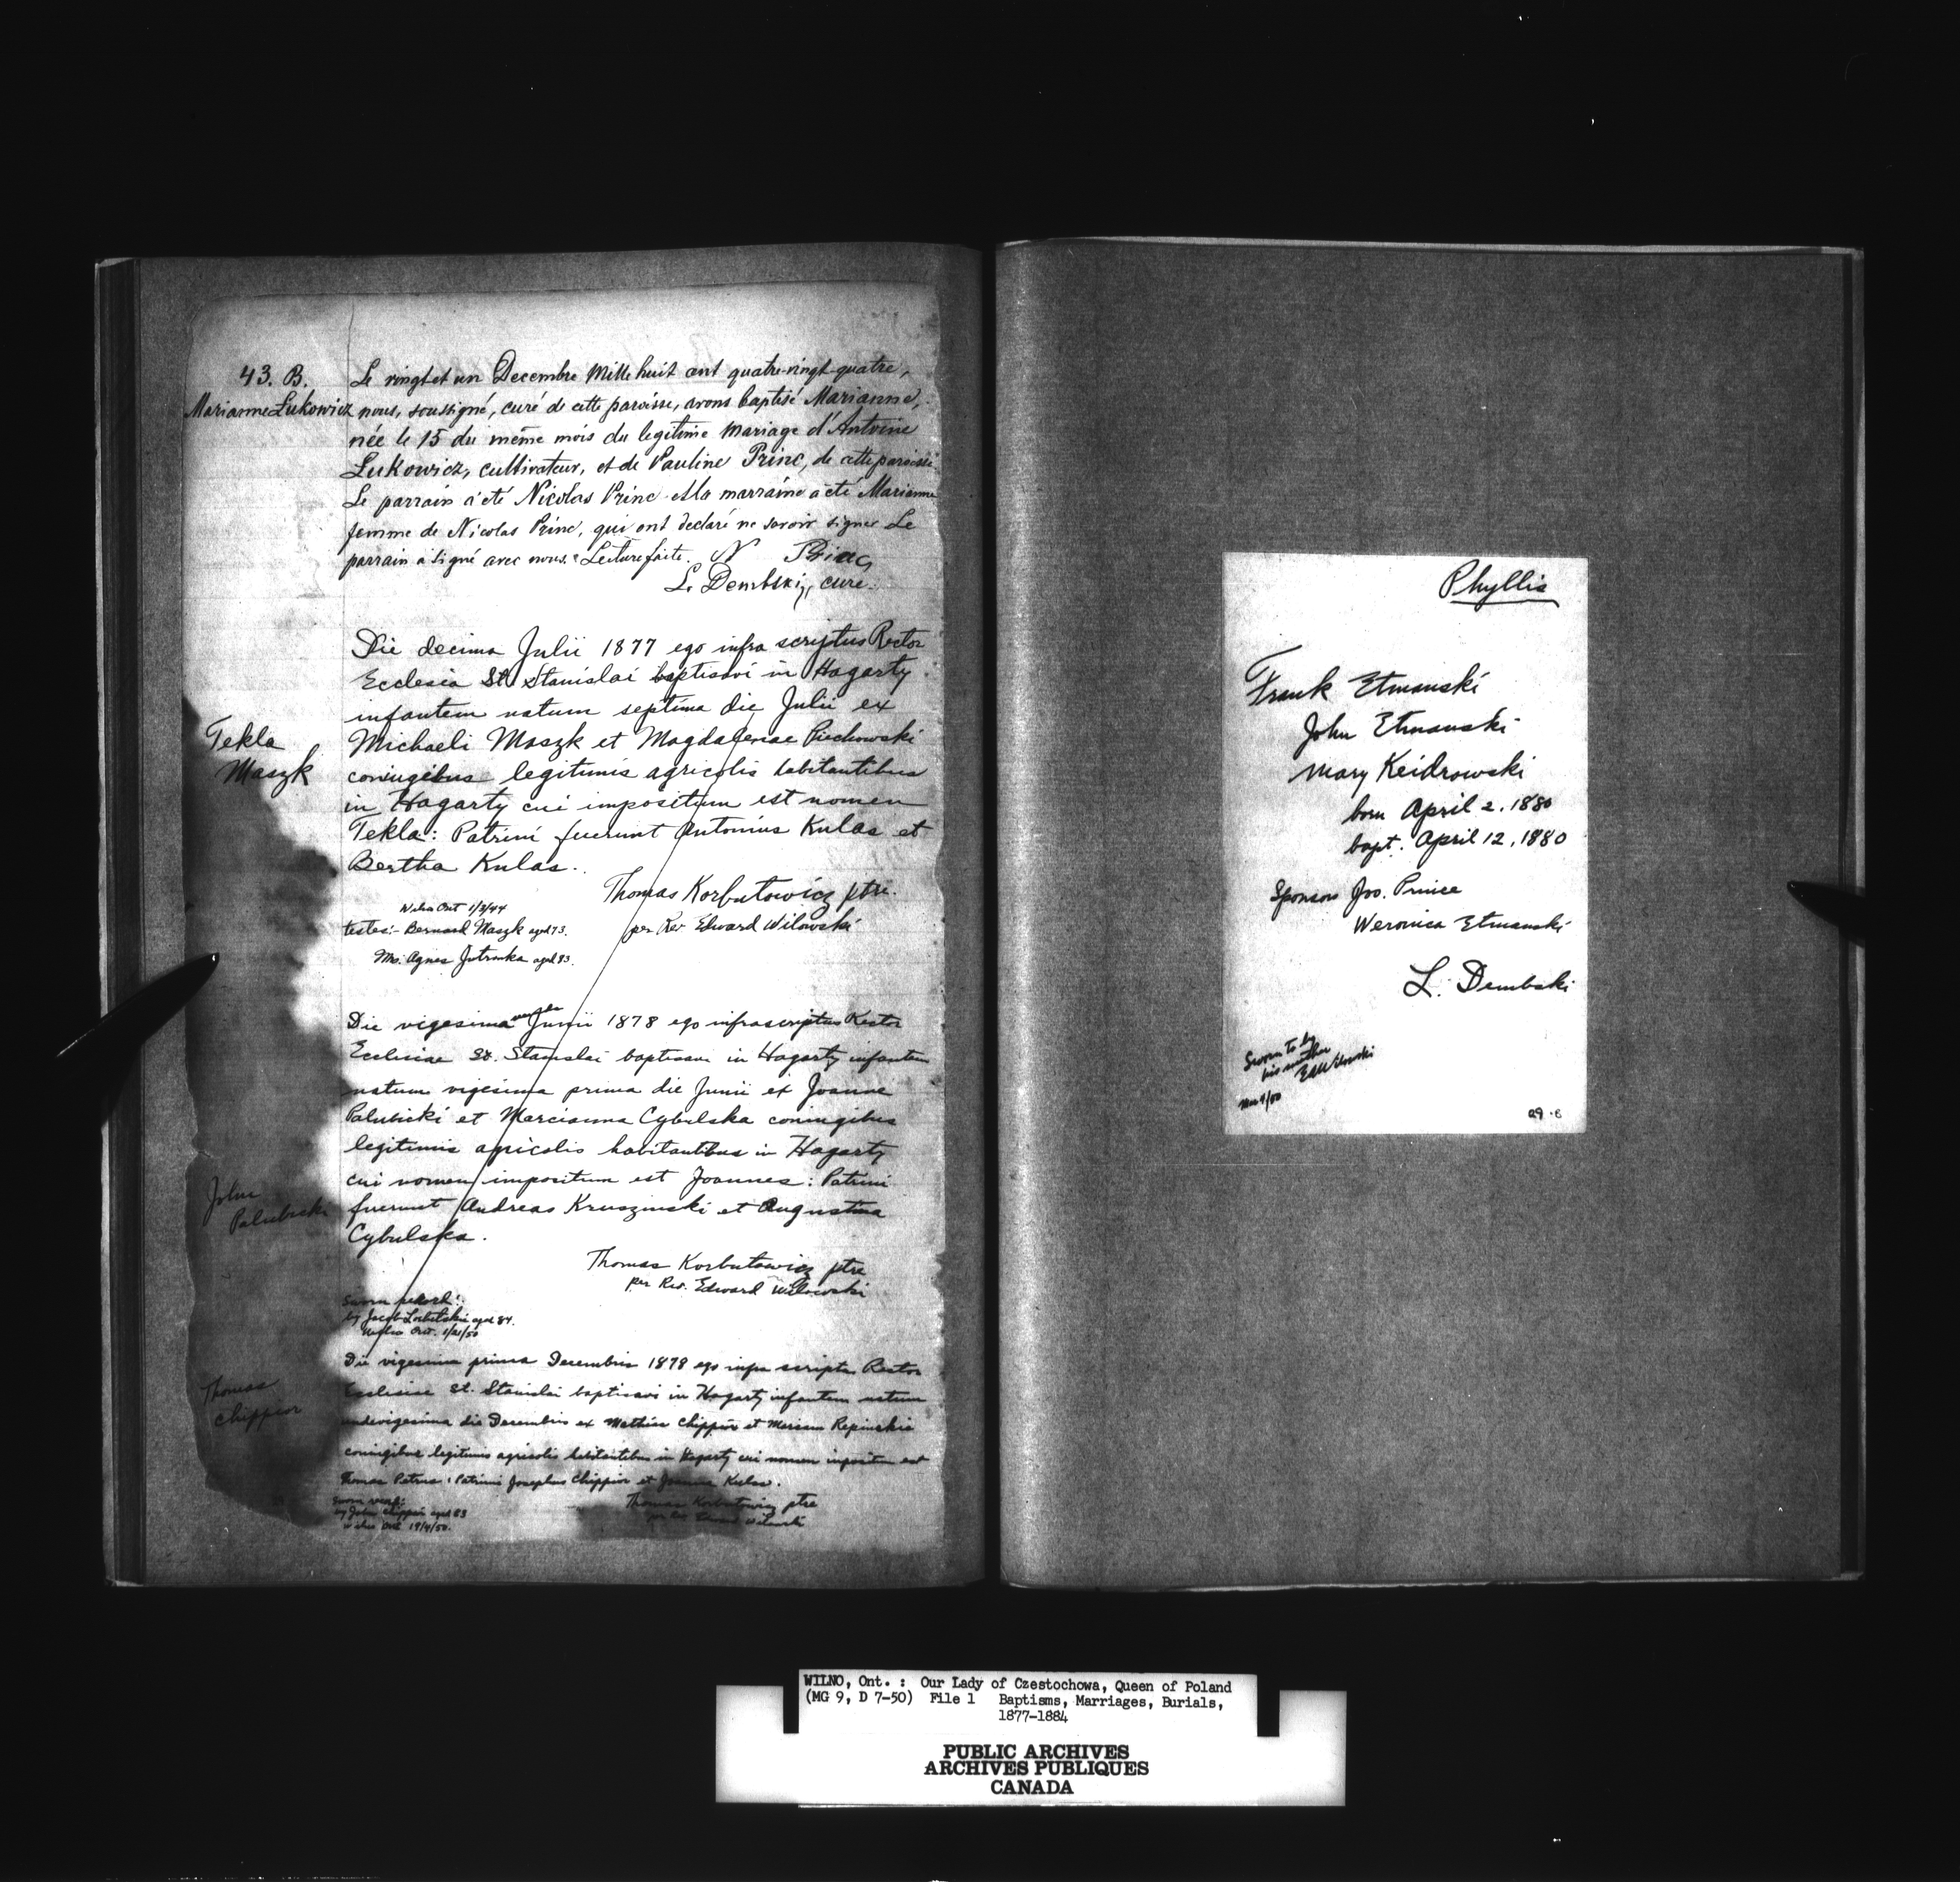 43. B.
Marianne Lukowicz
Le vingt et un Decembre Mille huit cent quatre-vingt-quatre,
nous, soussigné, curé de cette paroisse, avons baptisé Marianne,
née le 15 du même mois du legitime mariage d'Antoine
Lukowicz, cultivateur, et de Pauline Princ, de cette paroisse
Le parrain a été Nicolas Princ et la marraine a été Marianne
femme de Nicolas Princ, qui ont declaré ne savoir signer Le
parrain a signé avec nous. Lecture faite. N Princ
L. Dembski, curé.
Tekla
Maszk
Die decima Julii 1877 ego infra scriptus Rector
Ecclesia St. Stanislai baptisavi in Hagarty
infantem natum septima die Julii ex
Michaeli Maszk et Magdalenae Piechowski
coniugibus legitimis agricolis habitantibus
in Hagarty cui impositum est nomen
Tekla: Patrini fuerunt Antonius Kulas et
Bertha Kulas.
Thomas Korbutowicz ptre.
per Rev Edward Wilowski
Wilno Ont 1/3/44
testes:- Bernard Maszk aged 73.
Mrs. Agnes Jutronka aged 83.
John
Palubicki
Die vigesima Junii 1878 ego infrascriptus Rector
Ecclesiae St. Stanislai baptisavi in Hagarty infantem
natum vigesima prima die Junii ex Joanne
Palubicki et Marcianna Cybulska coniugibus
legitimis agricolis habitantibus in Hagarty
cui nomen impositum est Joannes: Patrini
fuerunt Andreas Kruszinski et Augustina
Cybulska.
Thomas Korbutowicz ptre
per Rev. Edward Wilowski
Sworn record:
by Jacob aged 84.
Ont. 1/21/50
Thomas
Chippior
Die vigesima prima Decembris 1878 ego infra scripts Rector
Ecclesiae St. Stanislai baptisavi in Hagarty infantem natum
undevigesima die Decembris ex Mathias Chippior et Mariam Repinskie
coniugibus legitimis agricolis habitantibus in Hagarty cui nomen impositum est
Thomas Petrus: Patrini Josephus Chippior et Joanna Kulas.
Thomas Korbutowicz ptre
per Rev Edward Wilowski
Sworn
by John Chippior aged 83
Wilno Ont 19/4/50.
Phyllis
Frank Etmanski
John Etmanski
Mary Keidrowski
born April 2, 1880
bapt. April 12, 1880
Sponsors Jos. Prince
Weronica Etmanski
L. Dembski
Sworn to by
his mother
E Wilowski
29-6
WILNO, Ont. : Our Lady of Czestochowa, Queen of Poland
(MG 9, D 7-50) File 1 Baptisms, Marriages, Burials,
1877-1884
PUBLIC ARCHIVES
ARCHIVES PUBLIQUES
CANADA